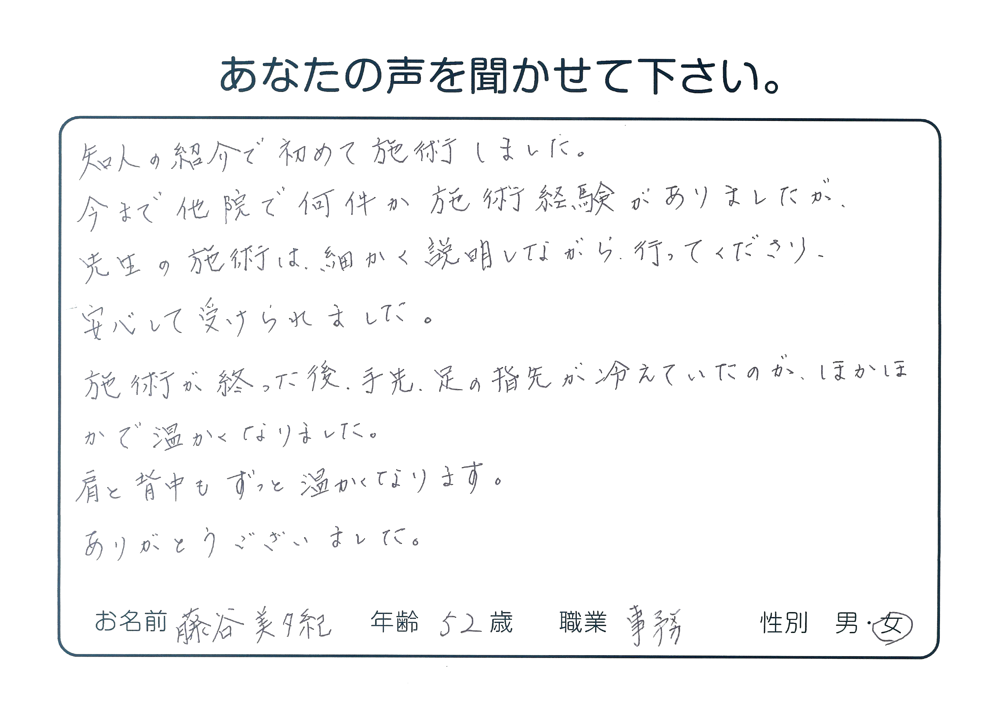 あなたの声を聞かせて下さい。
知人の紹介で初めて施術しました。
今まで他院で何件か施術経験がありましたが、
先生の施術は、細かく説明しながら、行ってくださり、
安心して受けられました。
施術が終った後、手先、足の指先が冷えていたのが、ほかほ
かで温かくなりました。
肩と背中もずっと温かくなります。
ありがとうございました。
お名前 藤谷美夕紀 年齢 52歳 職業 事務 性別 男・女